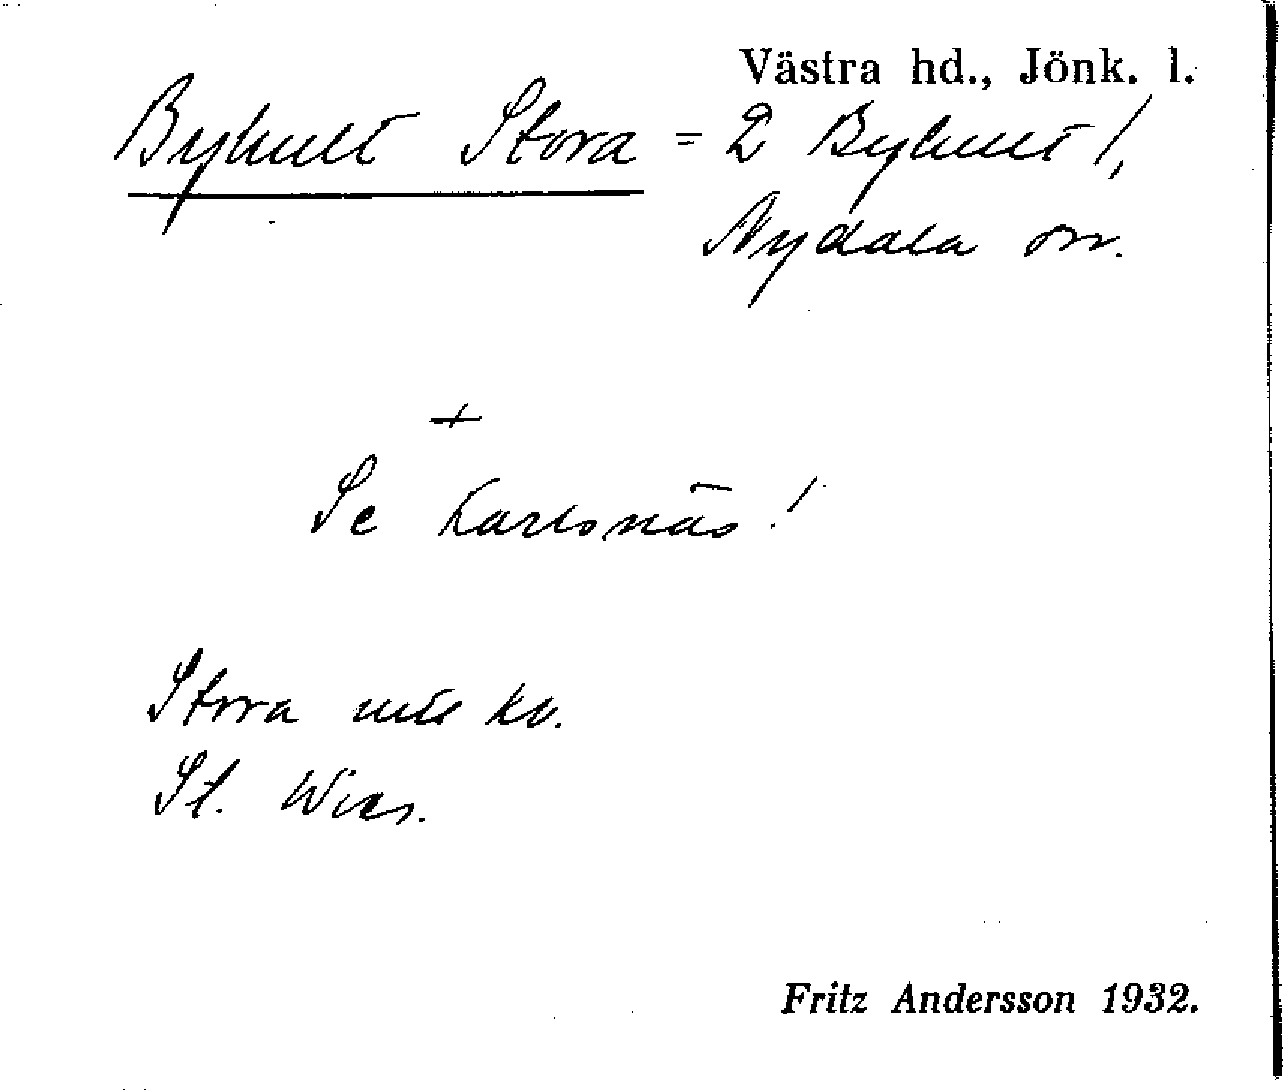 Västra hd., Jönk. l.
Byhult Stora = 2 Byhult!,
Nydala sn.
+
Se Karlsnäs!
Stora utr kv.
St. Wies.
Fritz Andersson 1932.